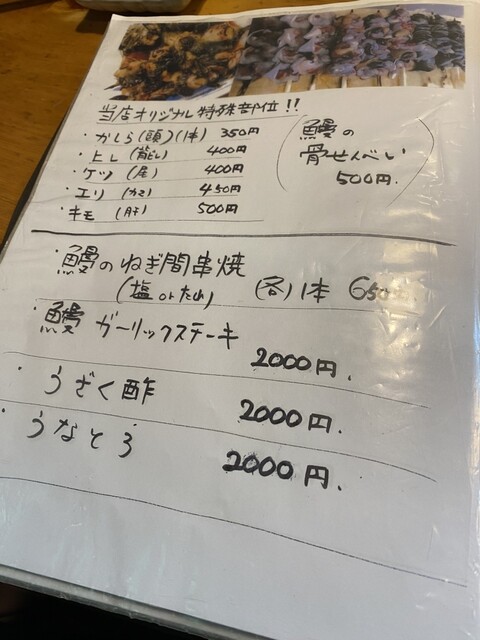 当店オリジナル特殊部位!!
・かしら(頭)(1本) 350円
・ヒレ(龍) 400円
・ケツ(尾) 400円
・エリ(カマ) 450円
・キモ(肝) 500円
鰻の
骨せんべい
500円.
・鰻のねぎ間串焼
(塩orたれ) (各)1本 650
・鰻 ガーリックステーキ
2000円.
・うざく酢
2000円.
・うなとろ
2000円.